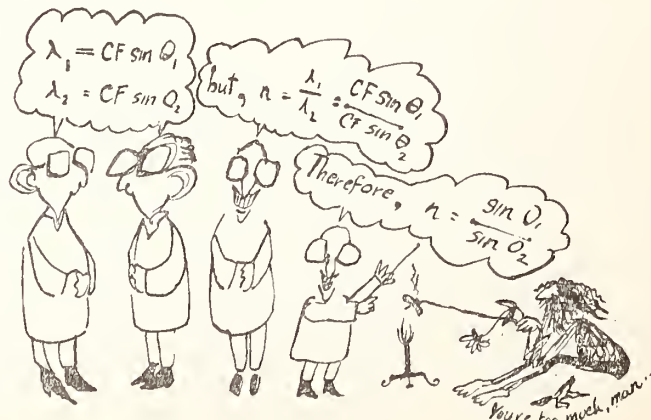 λ₁ = CF sin θ₁
λ₂ = CF sin θ₂
but, n = λ₁/λ₂ = CF sin θ₁/CF sin θ₂
Therefore, n = sin θ₁/sin θ₂
You're too much, man...